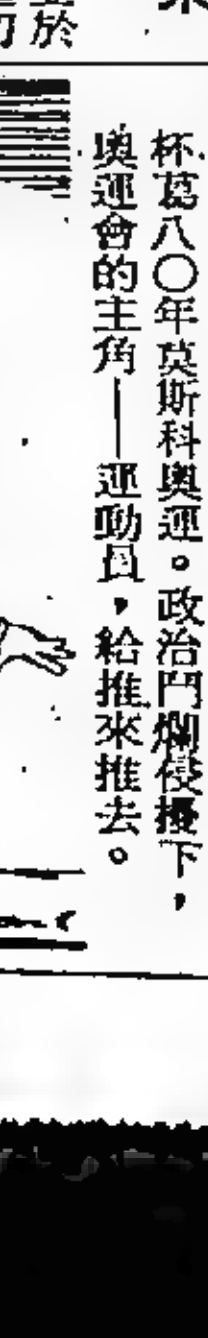 杯葛八〇年莫斯科奧運。政治鬥爛侵擾下，
奧運會的主角——運動員，給推來推去。
於